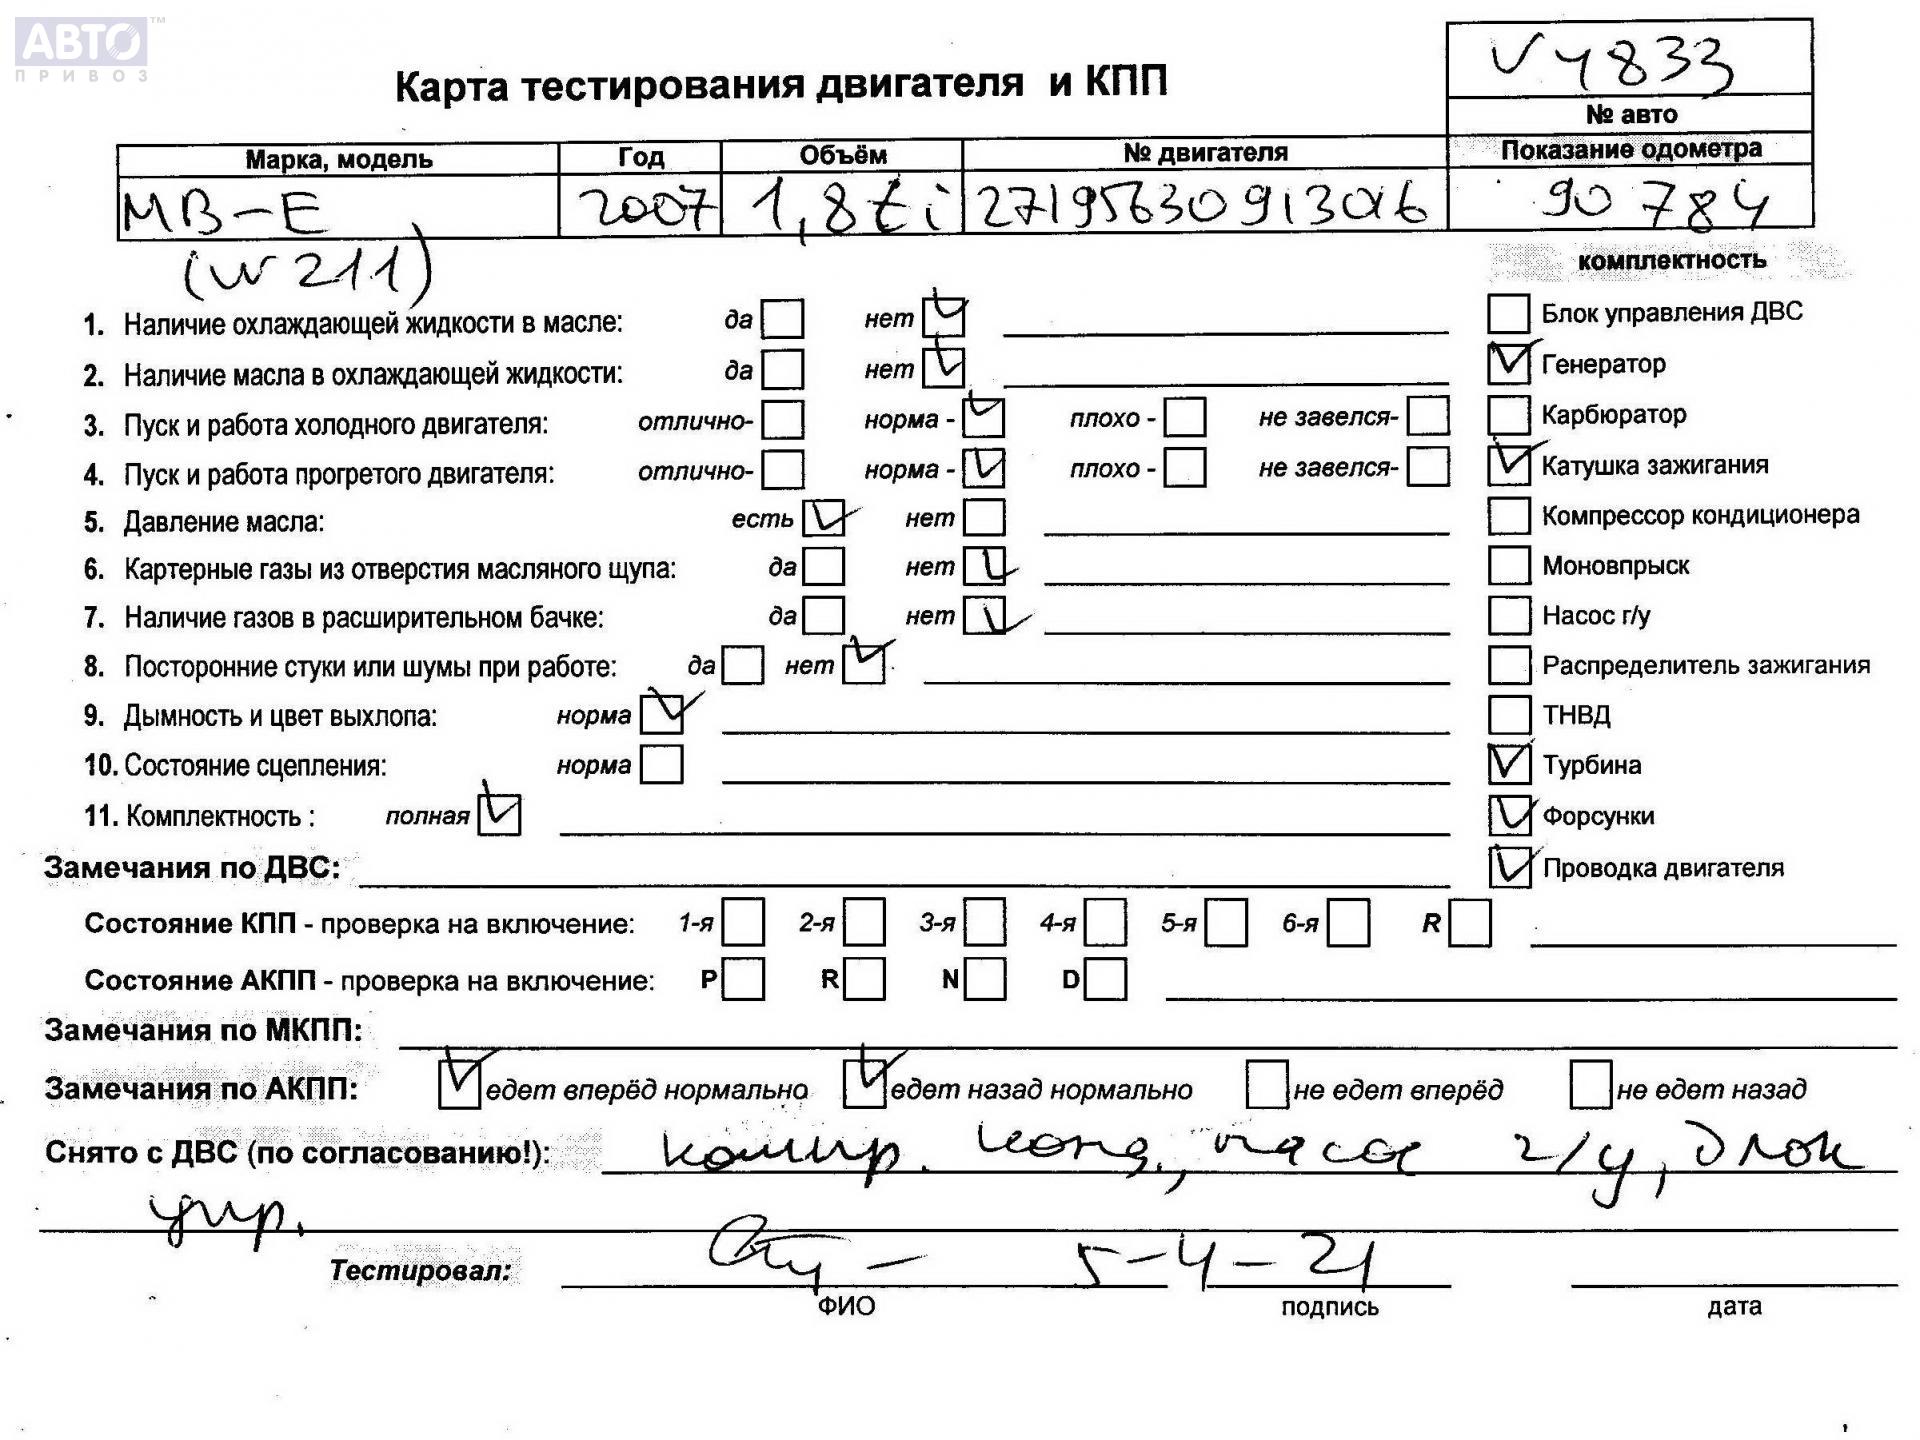 АВТО™
ПРИВОЗ
V4833
Карта тестирования двигателя и КПП
№ авто
Марка, модель Год Объём № двигателя Показание одометра
MB-E 2007 1,8ti 90 784
(W211)
комплектность
1. Наличие охлаждающей жидкости в масле: да нет
Блок управления ДВС
2. Наличие масла в охлаждающей жидкости: да нет
Генератор
3. Пуск и работа холодного двигателя: отлично- норма - плохо - не завелся-
Карбюратор
4. Пуск и работа прогретого двигателя: отлично- норма - плохо - не завелся-
Катушка зажигания
5. Давление масла: есть нет
Компрессор кондиционера
6. Картерные газы из отверстия масляного щупа: да нет
Моновпрыск
7. Наличие газов в расширительном бачке: да нет
Насос г/у
8. Посторонние стуки или шумы при работе: да нет
Распределитель зажигания
9. Дымность и цвет выхлопа: норма
ТНВД
10. Состояние сцепления: норма
Турбина
11. Комплектность : полная
Форсунки
Замечания по ДВС:
Проводка двигателя
Состояние КПП - проверка на включение: 1-я 2-я 3-я 4-я 5-я 6-я R
Состояние АКПП - проверка на включение: P R N D
Замечания по МКПП:
Замечания по АКПП: едет вперёд нормально едет назад нормально не едет вперёд не едет назад
Снято с ДВС (по согласованию!): компр. конд., насос г/у, блок
упр.
Тестировал: 5-4-21
ФИО подпись дата